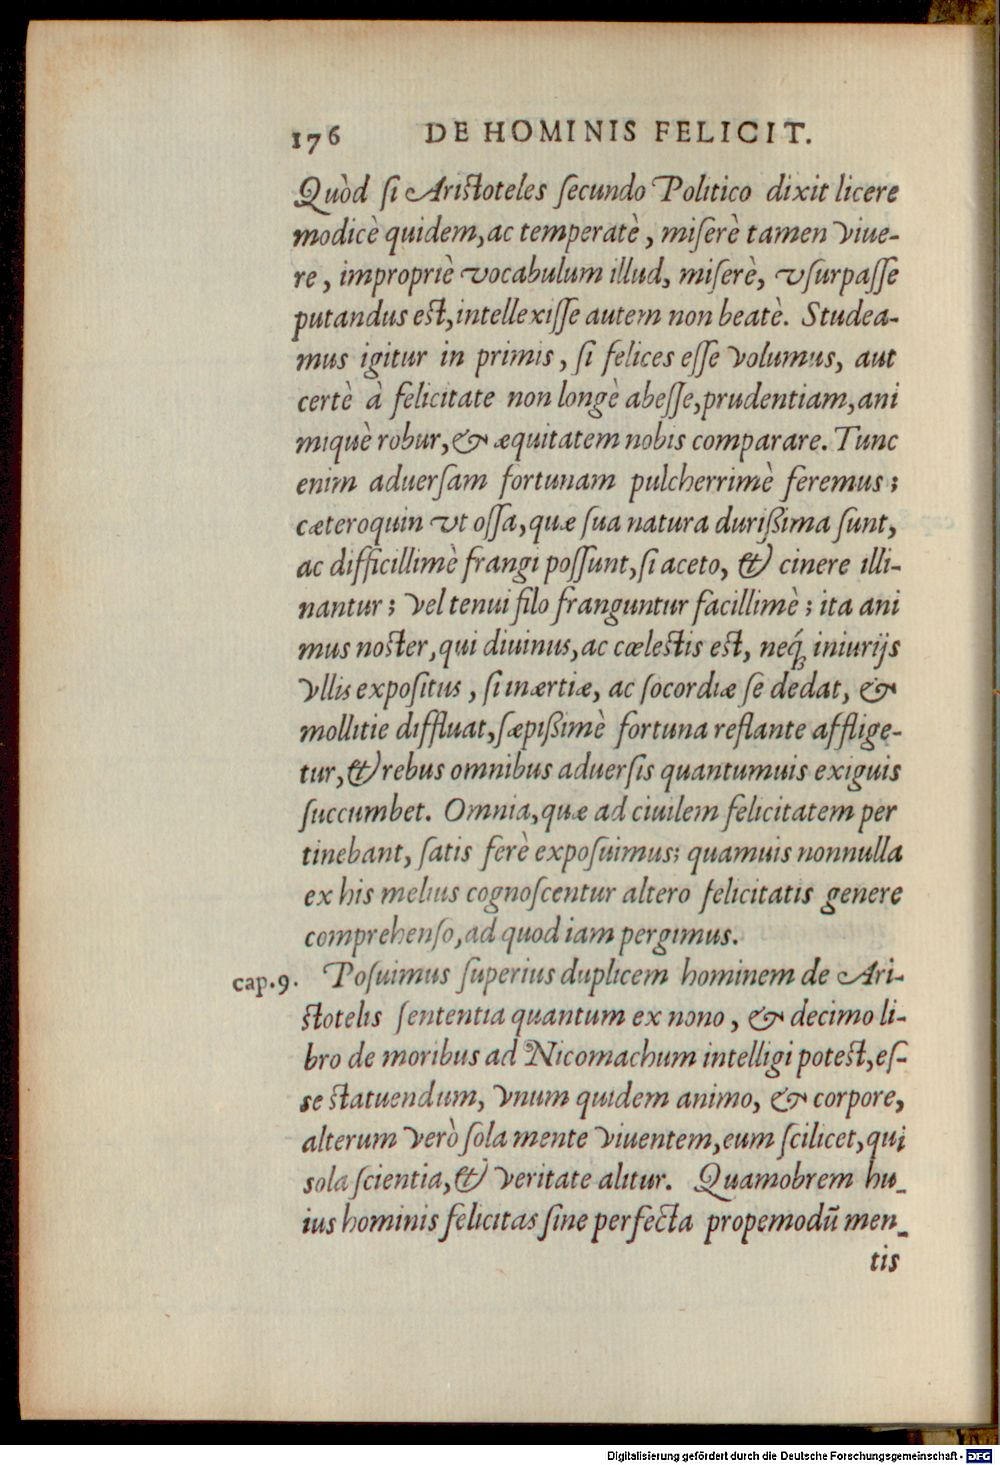 176 DE HOMINIS FELICIT.
Quòd ſi Ariſtoteles ſecundo Politico dixit licere
modicè quidem, ac temperatè, miſerè tamen viue-
re, impropriè vocabulum illud, miſerè, vſurpaſſe
putandus eſt, intellexiſſe autem non beatè. Studea-
mus igitur in primis, ſi felices eſſe volumus, aut
certè à felicitate non longè abeſſe, prudentiam, ani
miquè robur, & æquitatem nobis comparare. Tunc
enim aduerſam fortunam pulcherrimè feremus;
cæteroquin vt oſſa, quæ ſua natura durißima ſunt,
ac difficillimè frangi poſſunt, ſi aceto, & cinere illi-
nantur; vel tenui filo franguntur facillimè; ita ani
mus noſter, qui diuinus, ac cœleſtis eſt, neq́; iniurijs
vllis expoſitus, ſi inærtiæ, ac ſocordiæ ſe dedat, &
mollitie diffluat, ſæpißimè fortuna reflante afflige-
tur, & rebus omnibus aduerſis quantumuis exiguis
ſuccumbet. Omnia, quæ ad ciuilem felicitatem per
tinebant, ſatis ferè expoſuimus; quamuis nonnulla
ex his melius cognoſcentur altero felicitatis genere
comprehenſo, ad quod iam pergimus.
cap. 9. Poſuimus ſuperius duplicem hominem de Ari-
ſtotelis ſententia quantum ex nono, & decimo li-
bro de moribus ad Nicomachum intelligi poteſt, eſ-
se ſtatuendum, vnum quidem animo, & corpore,
alterum verò ſola mente viuentem, eum ſcilicet, qui
sola ſcientia, & veritate alitur. Quamobrem hu-
ius hominis felicitas ſine perfecta propemodū men-
tis
Digitalisierung gefördert durch die Deutsche Forschungsgemeinschaft - DFG